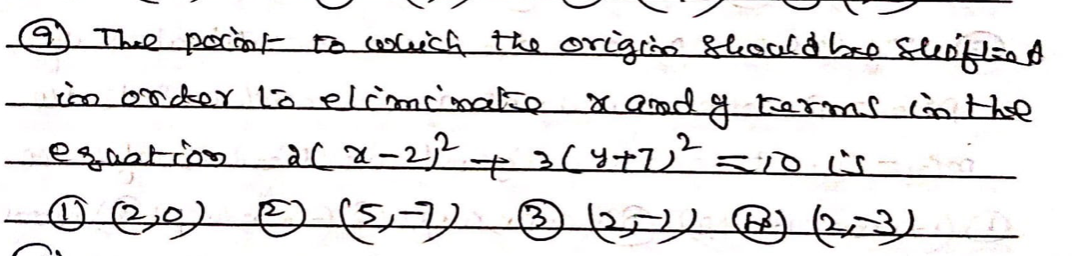 ⑨ The point to which the origin should be shifted
in order to eliminate x and y terms in the
equation 2(x-2)² + 3(y+7)² = 10 is
① (2,0) ② (5,-7) ③ (2,-7) ④ (2,-3)